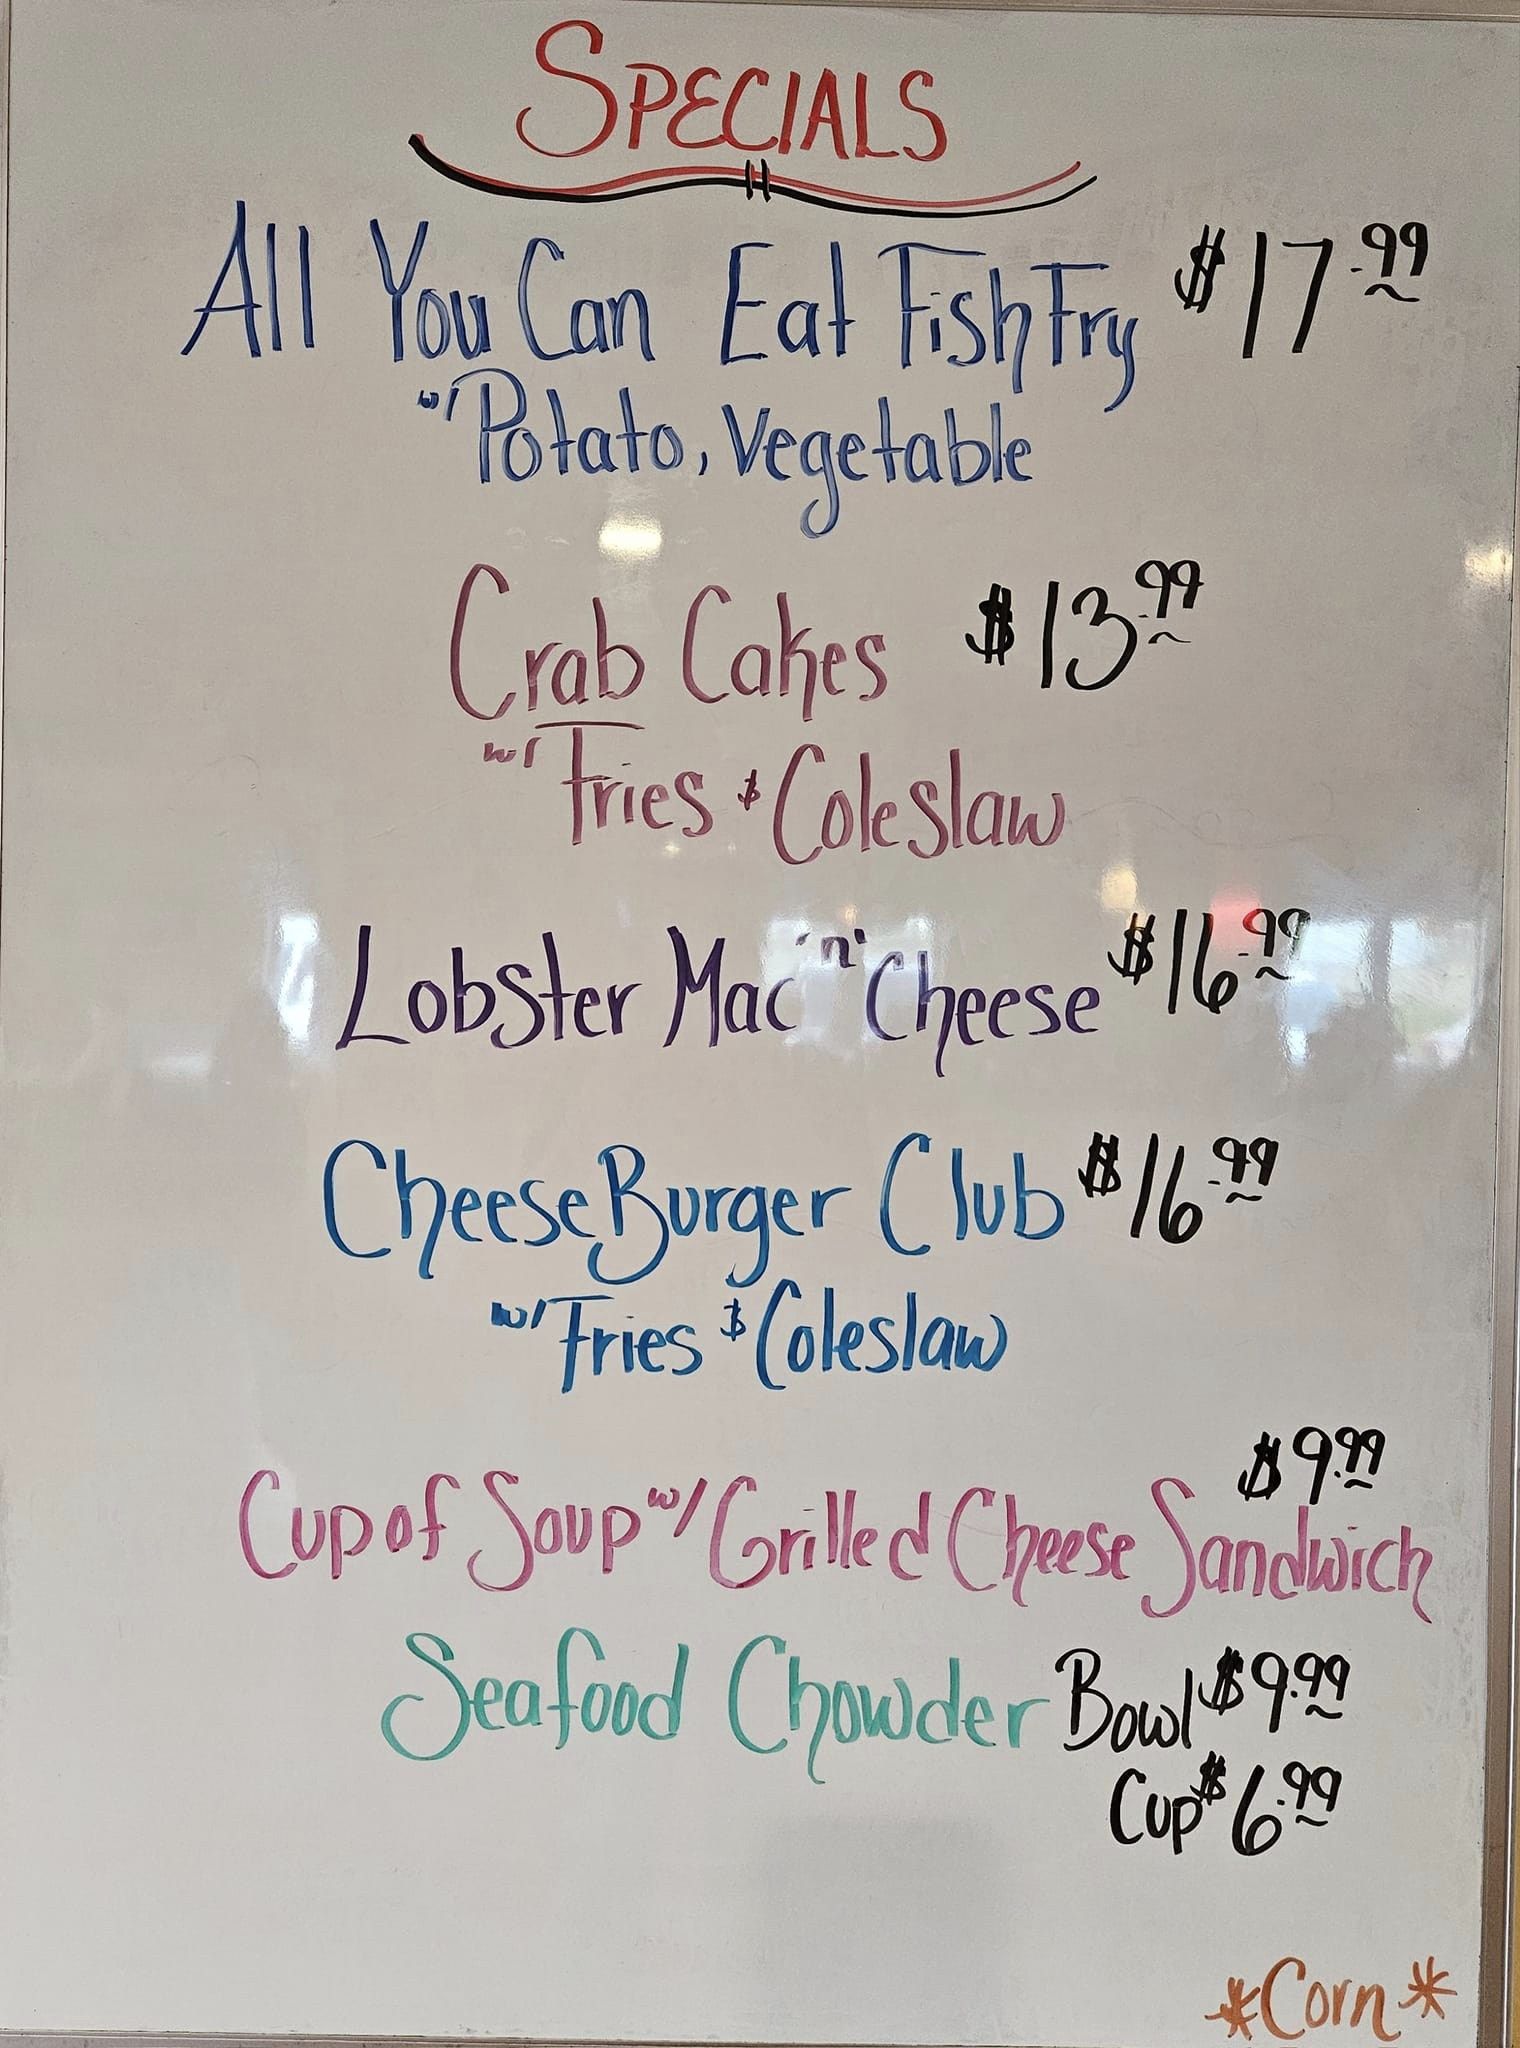 SPECIALS
All You Can Eat Fish Fry $17.99
w/ Potato, Vegetable
Crab Cakes $13.99
w/ Fries & Coleslaw
Lobster Mac 'n' Cheese $16.99
CheeseBurger Club $16.99
w/ Fries & Coleslaw
$9.99
Cup of Soup w/ Grilled Cheese Sandwich
Seafood Chowder Bowl $9.99
Cup $6.99
*Corn*